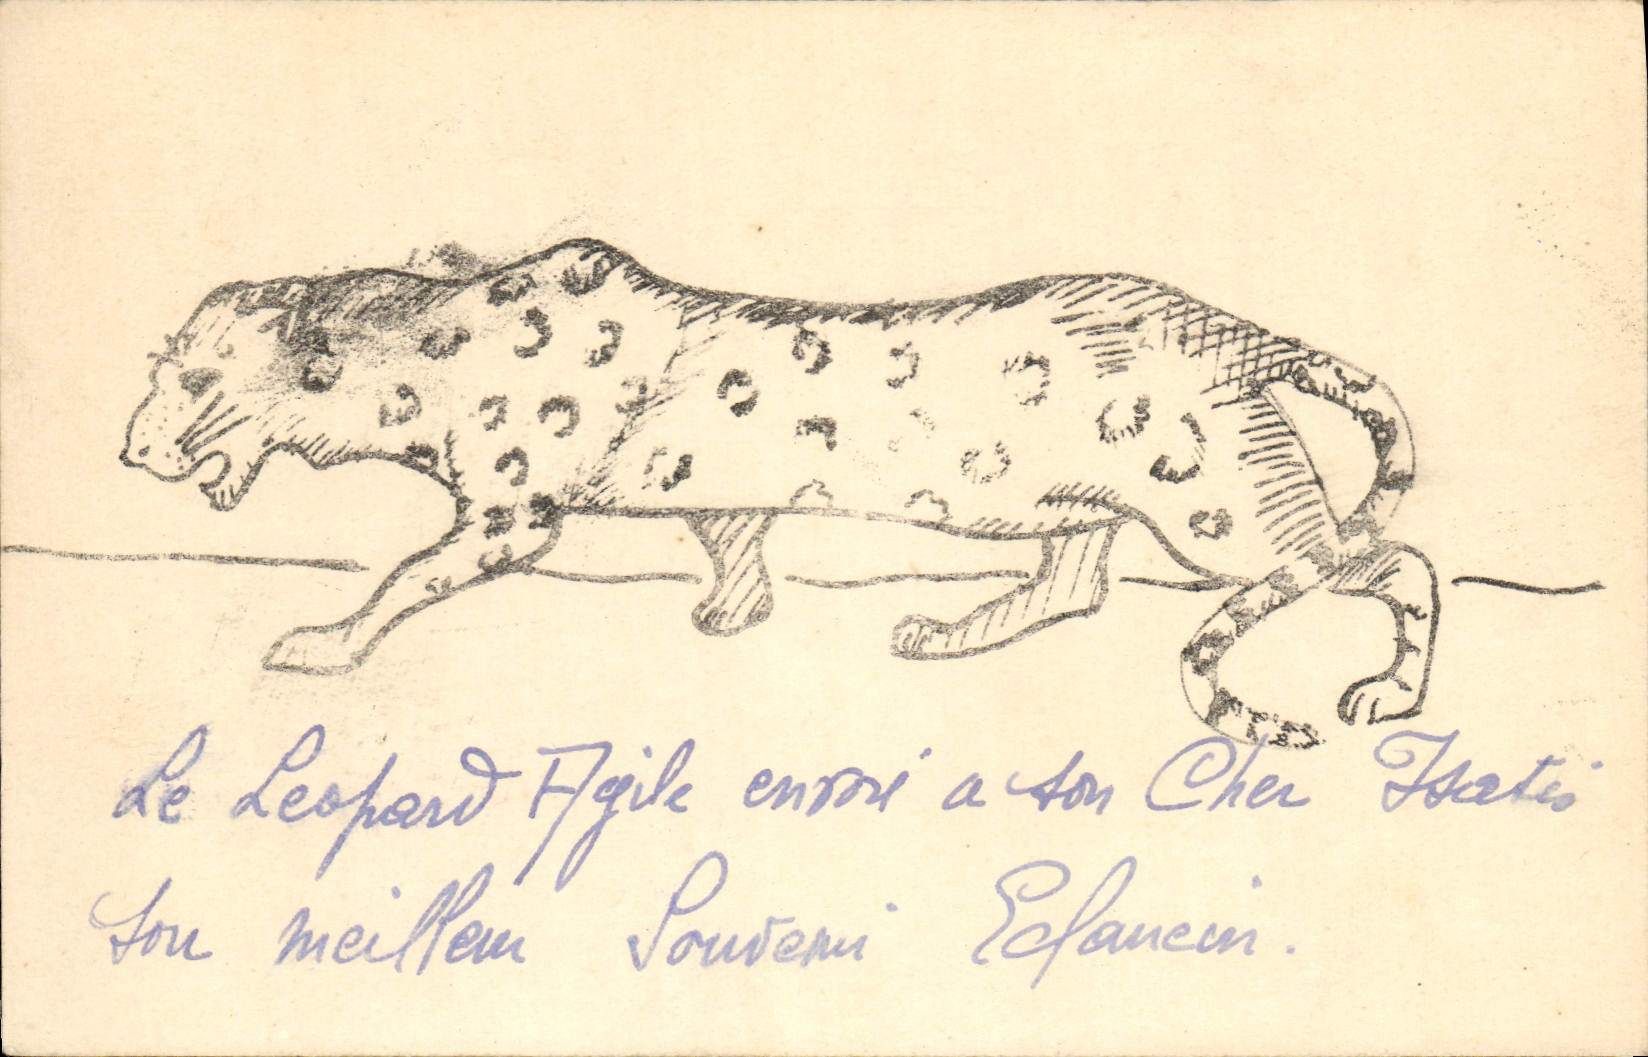 Le Leopard Agile envoié a son Cher Isatis
son meilleur Souvenir Eclaneur.